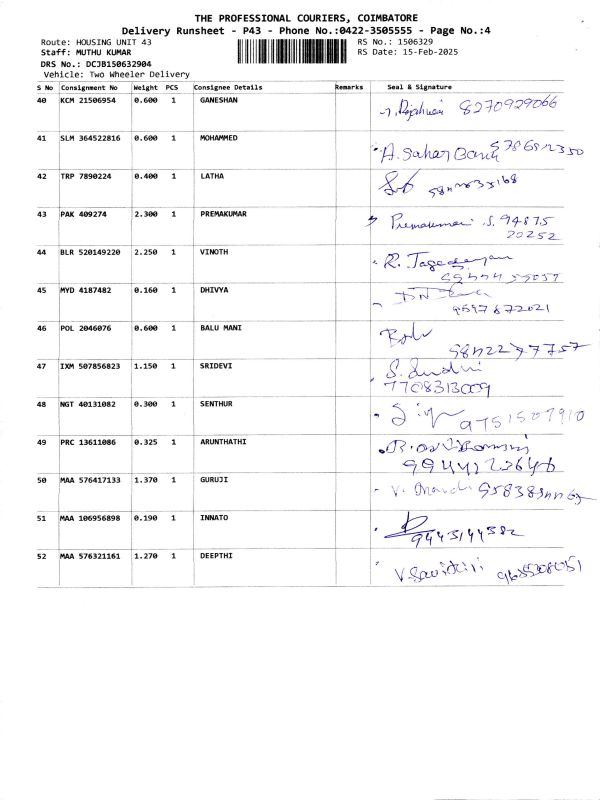 THE PROFESSIONAL COURIERS, COIMBATORE
Delivery Runsheet - P43 - Phone No.:0422-3505555 - Page No.:4
Route: HOUSING UNIT 43 RS No.: 1506329
Staff: MUTHU KUMAR RS Date: 15-Feb-2025
DRS No.: DCJB150632904
Vehicle: Two Wheeler Delivery
S No Consignment No Weight PCS Consignee Details Remarks Seal & Signature
40 KCM 21506954 0.600 1 GANESHAN 8270929066
41 SLM 364522816 0.600 1 MOHAMMED A. Sahar Banu
42 TRP 7890224 0.400 1 LATHA
43 PAK 409274 2.300 1 PREMAKUMAR Premakumari S. 94875
20252
44 BLR 520149220 2.250 1 VINOTH R.
45 MYD 4187482 0.160 1 DHIVYA
9597872021
46 POL 2046076 0.600 1 BALU MANI Balu
47 IXM 507856823 1.150 1 SRIDEVI S.
7708313009
48 NGT 40131082 0.300 1 SENTHUR 9751507910
49 PRC 13611086 0.325 1 ARUNTHATHI
9944123646
50 MAA 576417133 1.370 1 GURUJI V.
51 MAA 106956898 0.190 1 INNATO
9443144382
52 MAA 576321161 1.270 1 DEEPTHI V. Savithiri